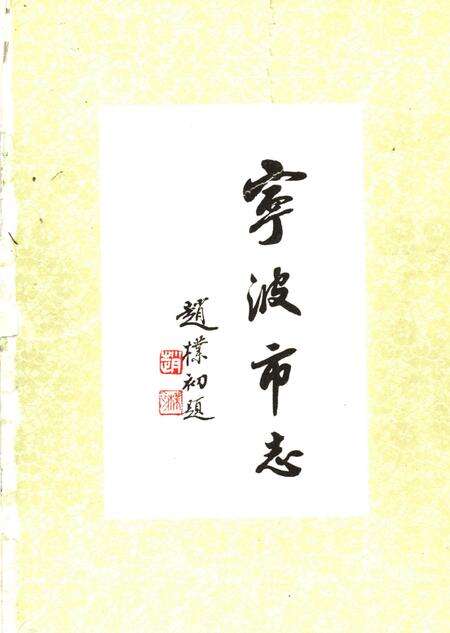 寧波市志
趙樸初題